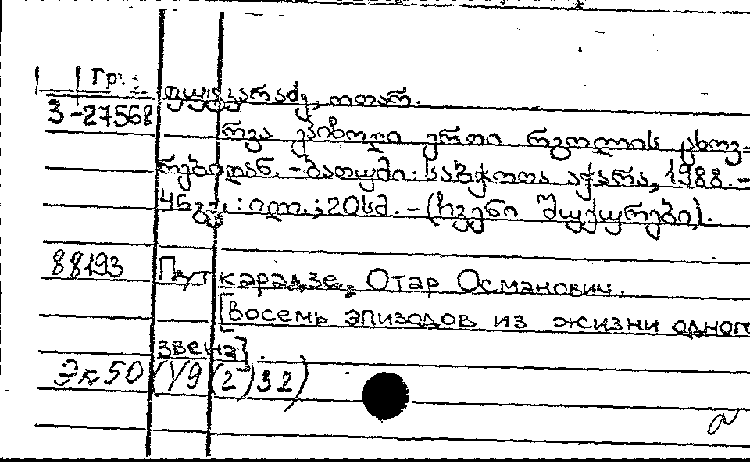 Гр.
3-27568 ფუტკარაძე, ოთარ.
რვა ეპიზოდი ერთი რგოლის ცხოვ-
რებიდან. - ბათუმი: საბჭოთა აჭარა, 1988. -
46გვ.: ილ.; 20სმ. - (ჩვენი შუქურები).
88193 Путкарадзе, Отар Османович.
[Восемь эпизодов из жизни одного
звена].
Эк50 (У9(2)32)